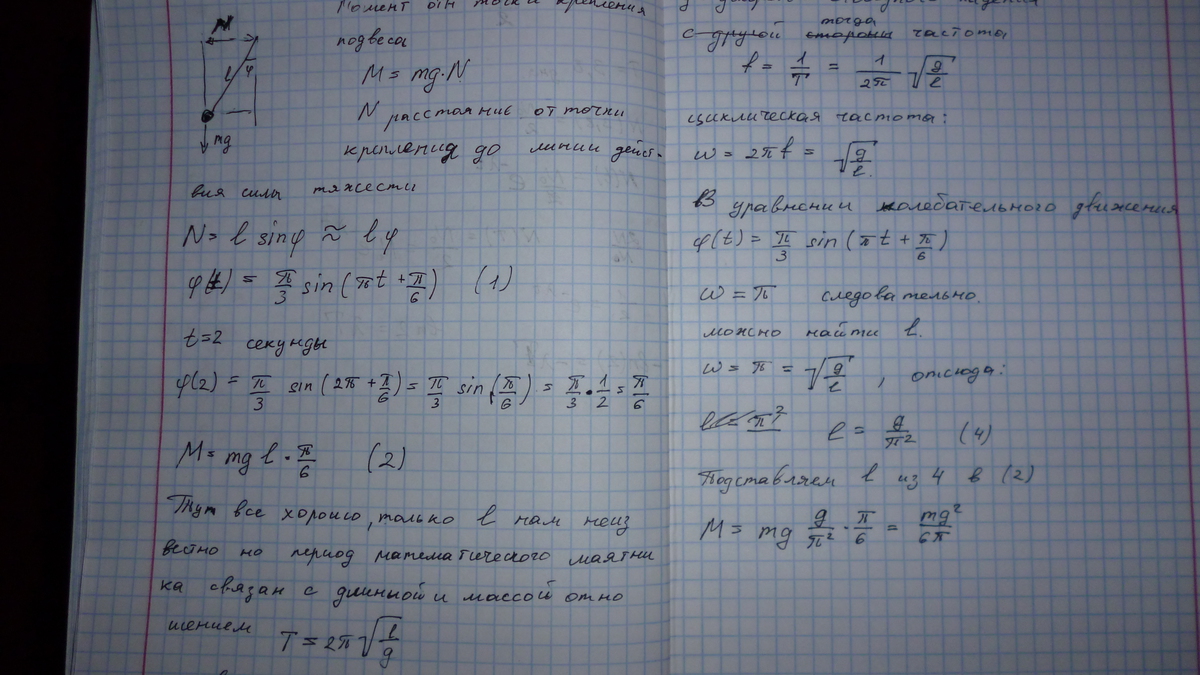 N
l
φ
mg
Момент отн точки крепления
подвеса
M = mg·N
N расстояние от точки
крепления до линии дейст-
вия силы тяжести
N = l sinφ ≈ lφ
φ(t) = π/3 sin(πt + π/6) (1)
t=2 секунды
φ(2) = π/3 sin(2π + π/6) = π/3 sin(π/6) = π/3 · 1/2 = π/6
M = mg l · π/6 (2)
Тут все хорошо, только l нам неиз
вестно но период математического маятни
ка связан с длинной и массой отно
шением T = 2π√(l/g)
тогда
с другой стороны частота
f = 1/T = 1/2π √(g/l)
циклическая частота:
ω = 2πf = √(g/l).
В уравнении колебательного движения
φ(t) = π/3 sin(πt + π/6)
ω = π следовательно.
можно найти l.
ω = π = √(g/l), отсюда:
l = π² l = g/π² (4)
Подставляем l из 4 в (2)
M = mg g/π² · π/6 = mg²/6π